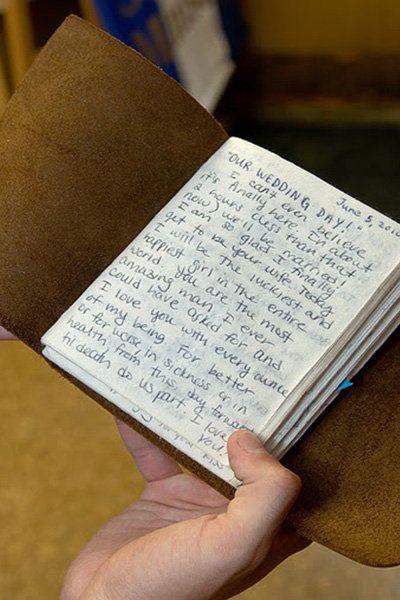 June 5, 2010
"OUR WEDDING DAY!"
I can't even believe
it's finally here. In about
2 hours (less than that
now) we'll be married!
I am so glad I finally
get to be your wife. Today
I will be the luckiest and
happiest girl in the entire
world. You are the most
amazing man I ever
could have asked for and
I love you with every ounce
of my being. For better
or for worse in sickness or in
health, from this day forward
til death do us part. I love
you!